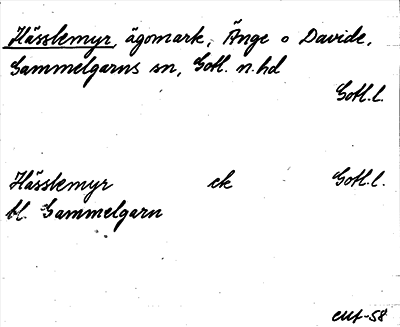 Hässlemyr, ägomark, Änge o Davide,
Gammelgarns sn, Gotl. n. hd
Gotl. l.
Hässlemyr ek Gotl. l.
bl. Gammelgarn
-58